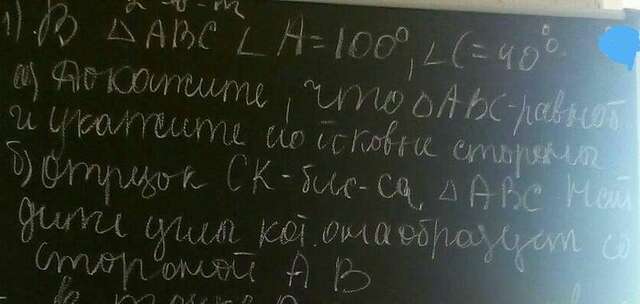 1) В △ABC ∠A=100°, ∠C=40°.
а) Докажите, что △ABC-равноб.
и укажите его боковые стороны
б) Отрезок СК-бис-са, △ABC Най
дите углы кот. она образует со
стороной AB